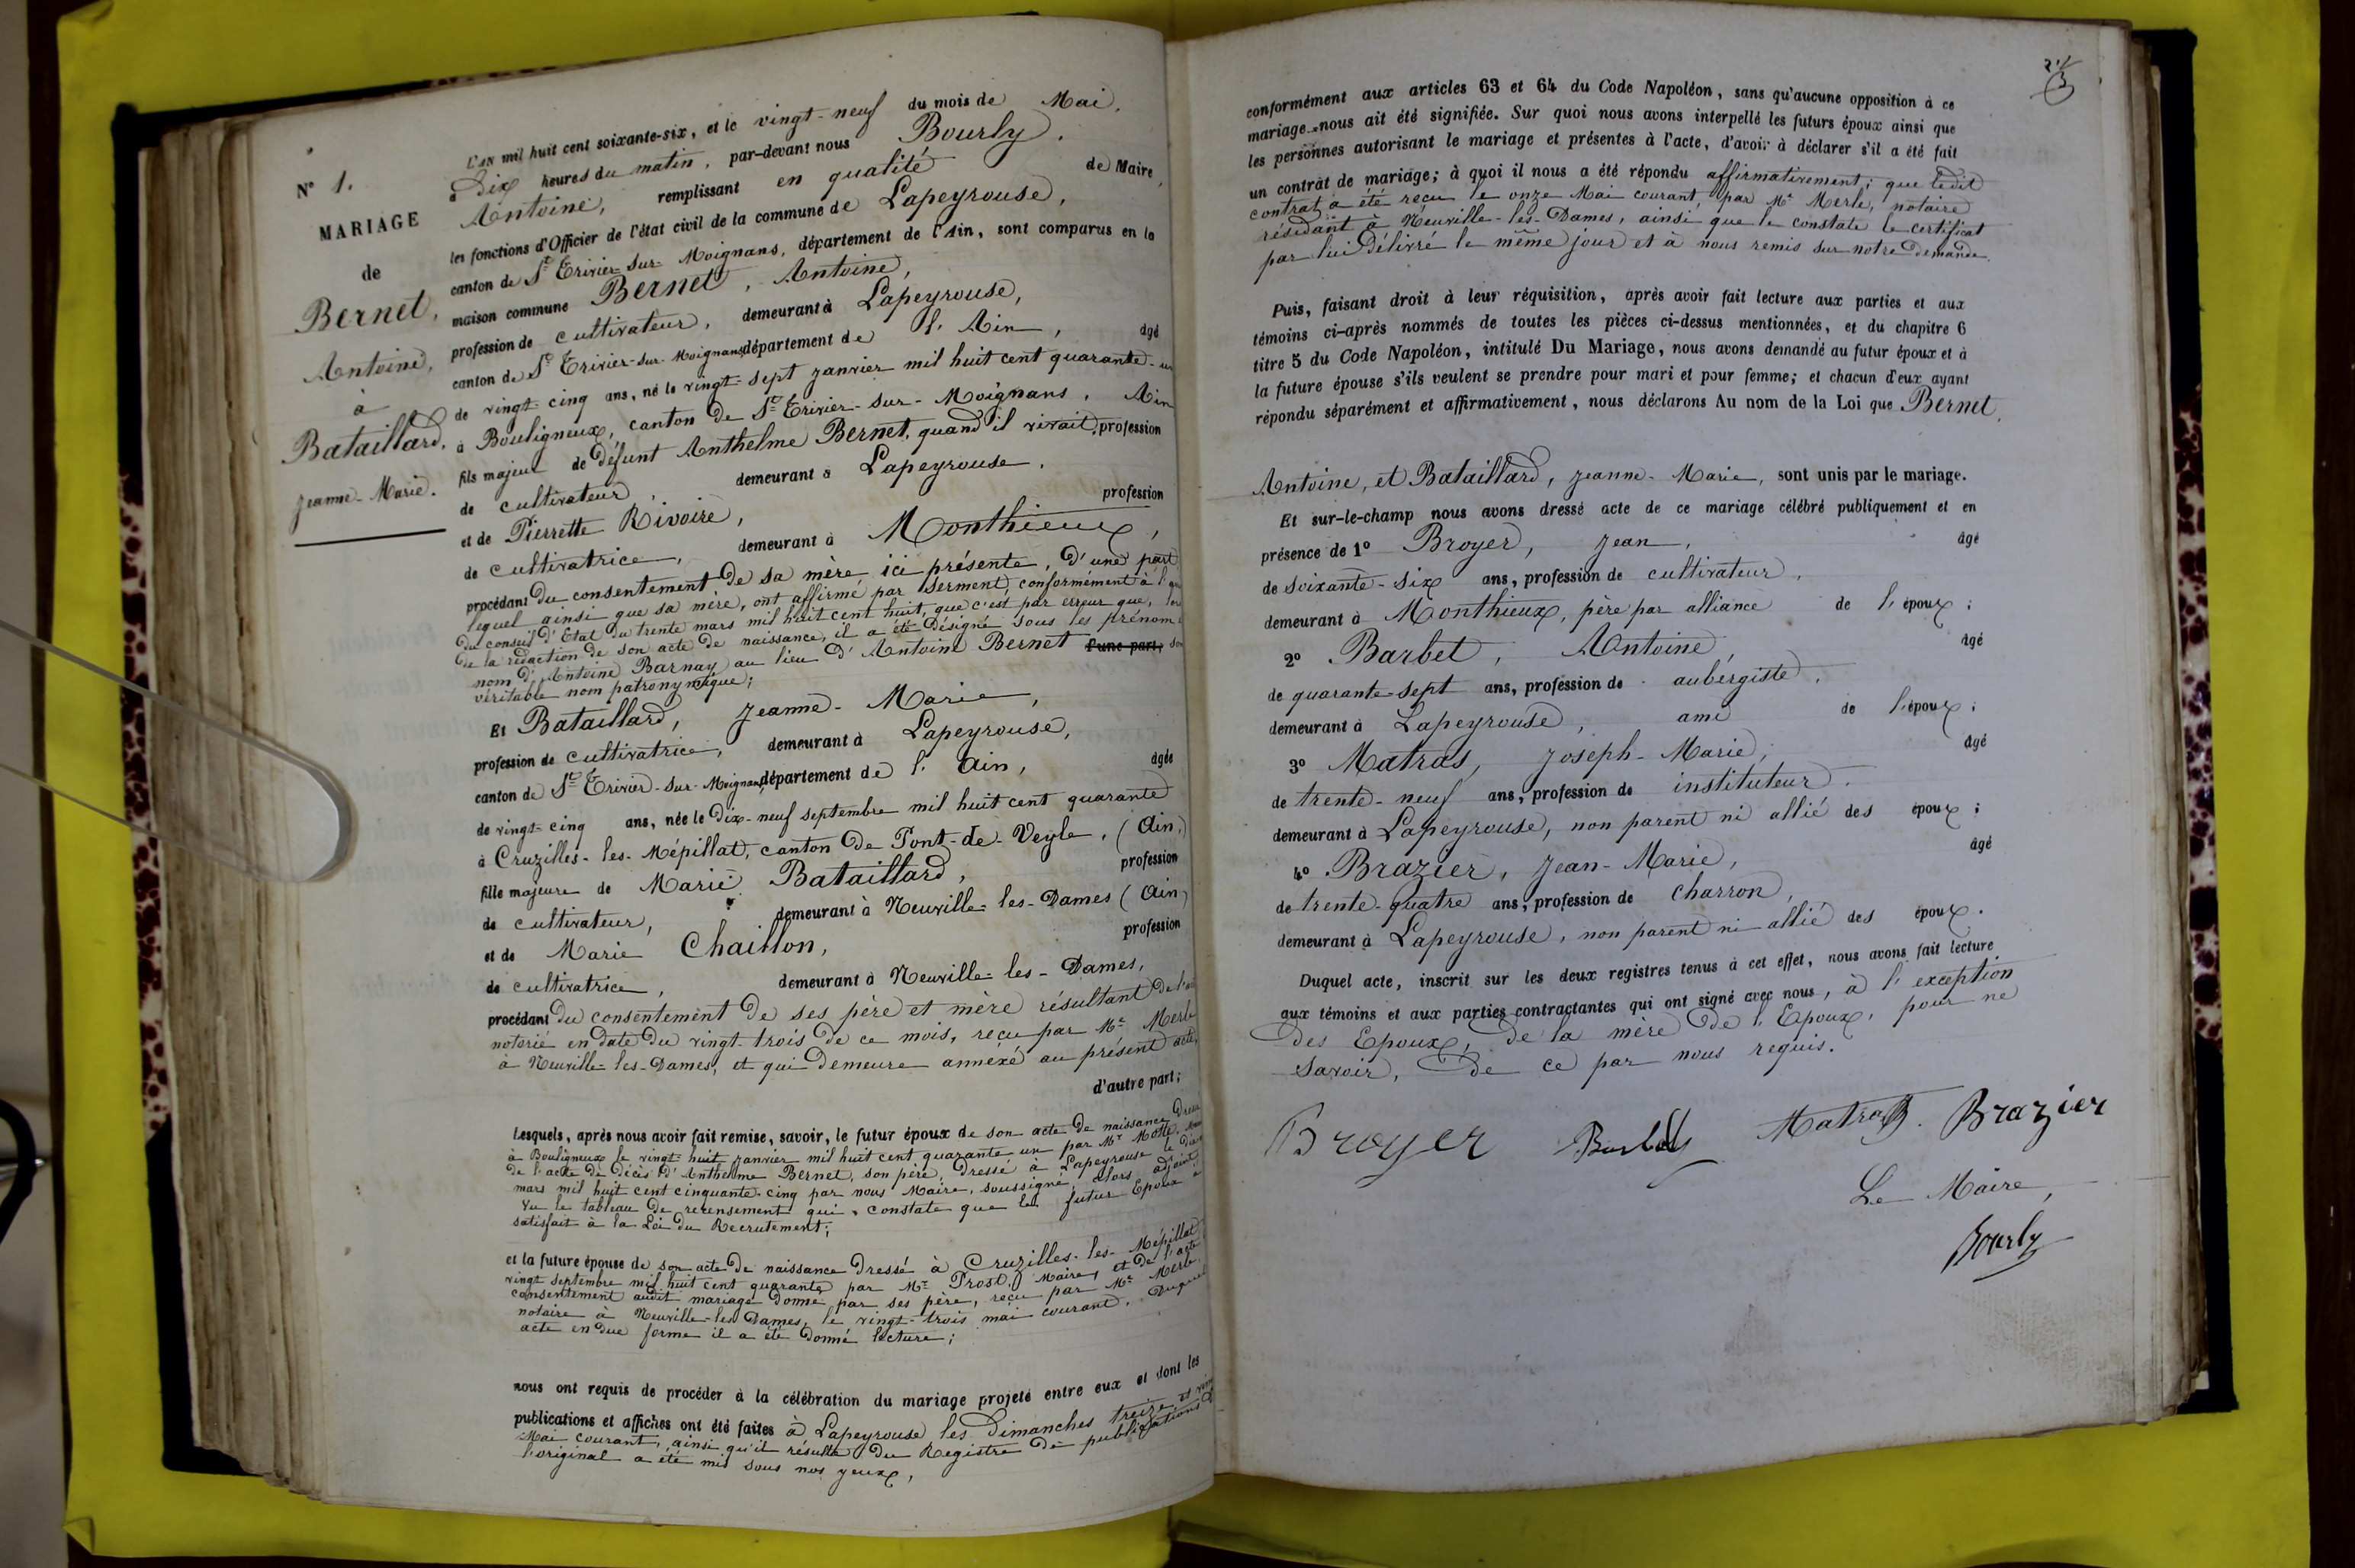 N° 1.
MARIAGE
de
Bernet,
Antoine,
à
Bataillard,
Jeanne-Marie.
L'AN mil huit cent soixante-six, et le vingt-neuf du mois de Mai,
à Dix heures du matin, par-devant nous Bourly,
Antoine, remplissant en qualité de Maire,
les fonctions d'Officier de l'état civil de la commune de Lapeyrouse,
canton de St Trivier-sur-Moignans, département de l'Ain, sont comparus en la
maison commune Bernet, Antoine,
profession de cultivateur, demeurant à Lapeyrouse,
canton de St Trivier-sur-Moignans, département de l'Ain, âgé
de vingt-cinq ans, né le vingt-sept janvier mil huit cent quarante-un
à Bouligneux, canton de St Trivier-sur-Moignans, Ain
fils majeur de défunt Anthelme Bernet, quand il vivait, profession
de cultivateur, demeurant à Lapeyrouse,
et de Pierrette Rivoire, profession
de cultivatrice, demeurant à Monthieux,
procédant du consentement de sa mère ici présente, d'une part
lequel ainsi que sa mère, ont affirmé par serment, conformément à l'
du conseil d'Etat du trente mars mil huit cent huit, que c'est par erreur que, lors
de la rédaction de son acte de naissance, il a été désigné sous les prénom
nom d'Antoine Barnay au lieu d'Antoine Bernet l'une part, son
véritable nom patronymique;
Et Bataillard, Jeanne-Marie,
profession de cultivatrice, demeurant à Lapeyrouse,
canton de St Trivier-sur-Moignans, département de l'Ain, âgée
de vingt-cinq ans, née le dix-neuf septembre mil huit cent quarante
à Cruzilles-les-Mépillat, canton de Pont-de-Veyle, (Ain,)
fille majeure de Marie Bataillard, profession
de cultivateur, demeurant à Neuville-les-Dames (Ain)
et de Marie Chaillon, profession
de cultivatrice, demeurant à Neuville-les-Dames,
procédant du consentement de ses père et mère résultant de l'
notarié en date du vingt-trois de ce mois, reçu par Me Merle
à Neuville-les-Dames, et qui demeure annéxé au présent acte,
d'autre part;
Lesquels, après nous avoir fait remise, savoir, le futur époux de son acte de naissance dressé
à Bouligneux le vingt-huit janvier mil huit cent quarante un par Mr
de l'acte de décès d'Anthelme Bernet, son père, dressé à Lapeyrouse le
mars mil huit cent cinquante-cinq par nous Maire, soussigné, alors adjoint
Vu le tableau de recensement qui constate que le futur Epoux a
satisfait à la Loi du Recrutement;
et la future épouse de son acte de naissance dressé à Cruzilles-les-Mépillat
vingt septembre mil huit cent quarante par Mr Prost, Maire, et de l'acte
consentement audit mariage donné par ses père, reçu par Me Merle,
notaire à Neuville-les-Dames, le vingt-trois mai courant. Duquel
acte en due forme il a été donné lecture;
nous ont requis de procéder à la célébration du mariage projeté entre eux et dont les
publications et affiches ont été faites à Lapeyrouse les Dimanches treize et
Mai courant, ainsi qu'il résulte du Registre de publications
l'original a été mis sous nos yeux,
conformément aux articles 63 et 64 du Code Napoléon, sans qu'aucune opposition à ce
mariage nous ait été signifiée. Sur quoi nous avons interpellé les futurs époux ainsi que
les personnes autorisant le mariage et présentes à l'acte, d'avoir à déclarer s'il a été fait
un contrat de mariage; à quoi il nous a été répondu affirmativement; que ledit
contrat a été reçu le onze Mai courant, par Me Merle, notaire
résidant à Neuville-les-Dames, ainsi que le constate le certificat
par lui délivré le même jour et à nous remis sur notre demande.
Puis, faisant droit à leur réquisition, après avoir fait lecture aux parties et aux
témoins ci-après nommés de toutes les pièces ci-dessus mentionnées, et du chapitre 6
titre 5 du Code Napoléon, intitulé Du Mariage, nous avons demandé au futur époux et à
la future épouse s'ils veulent se prendre pour mari et pour femme; et chacun d'eux ayant
répondu séparément et affirmativement, nous déclarons Au nom de la Loi que Bernet,
Antoine, et Bataillard, Jeanne-Marie, sont unis par le mariage.
Et sur-le-champ nous avons dressé acte de ce mariage célébré publiquement et en
présence de 1° Broyer, Jean, âgé
de soixante-six ans, profession de cultivateur,
demeurant à Monthieux, père par alliance de l'époux;
2° Barbet, Antoine, âgé
de quarante-sept ans, profession de aubergiste,
demeurant à Lapeyrouse, ami de l'époux;
3° Matras, Joseph-Marie, âgé
de trente-neuf ans, profession de instituteur.
demeurant à Lapeyrouse, non parent ni allié des époux;
4° Brazier, Jean-Marie, âgé
de trente-quatre ans, profession de charron,
demeurant à Lapeyrouse, non parent ni allié des époux.
Duquel acte, inscrit sur les deux registres tenus à cet effet, nous avons fait lecture
aux témoins et aux parties contractantes qui ont signé avec nous, à l'exception
des Epoux, de la mère de l'Epoux, pour ne
savoir, de ce par nous requis.
Broyer Barbet Matras. Brazier
Le Maire,
Bourly